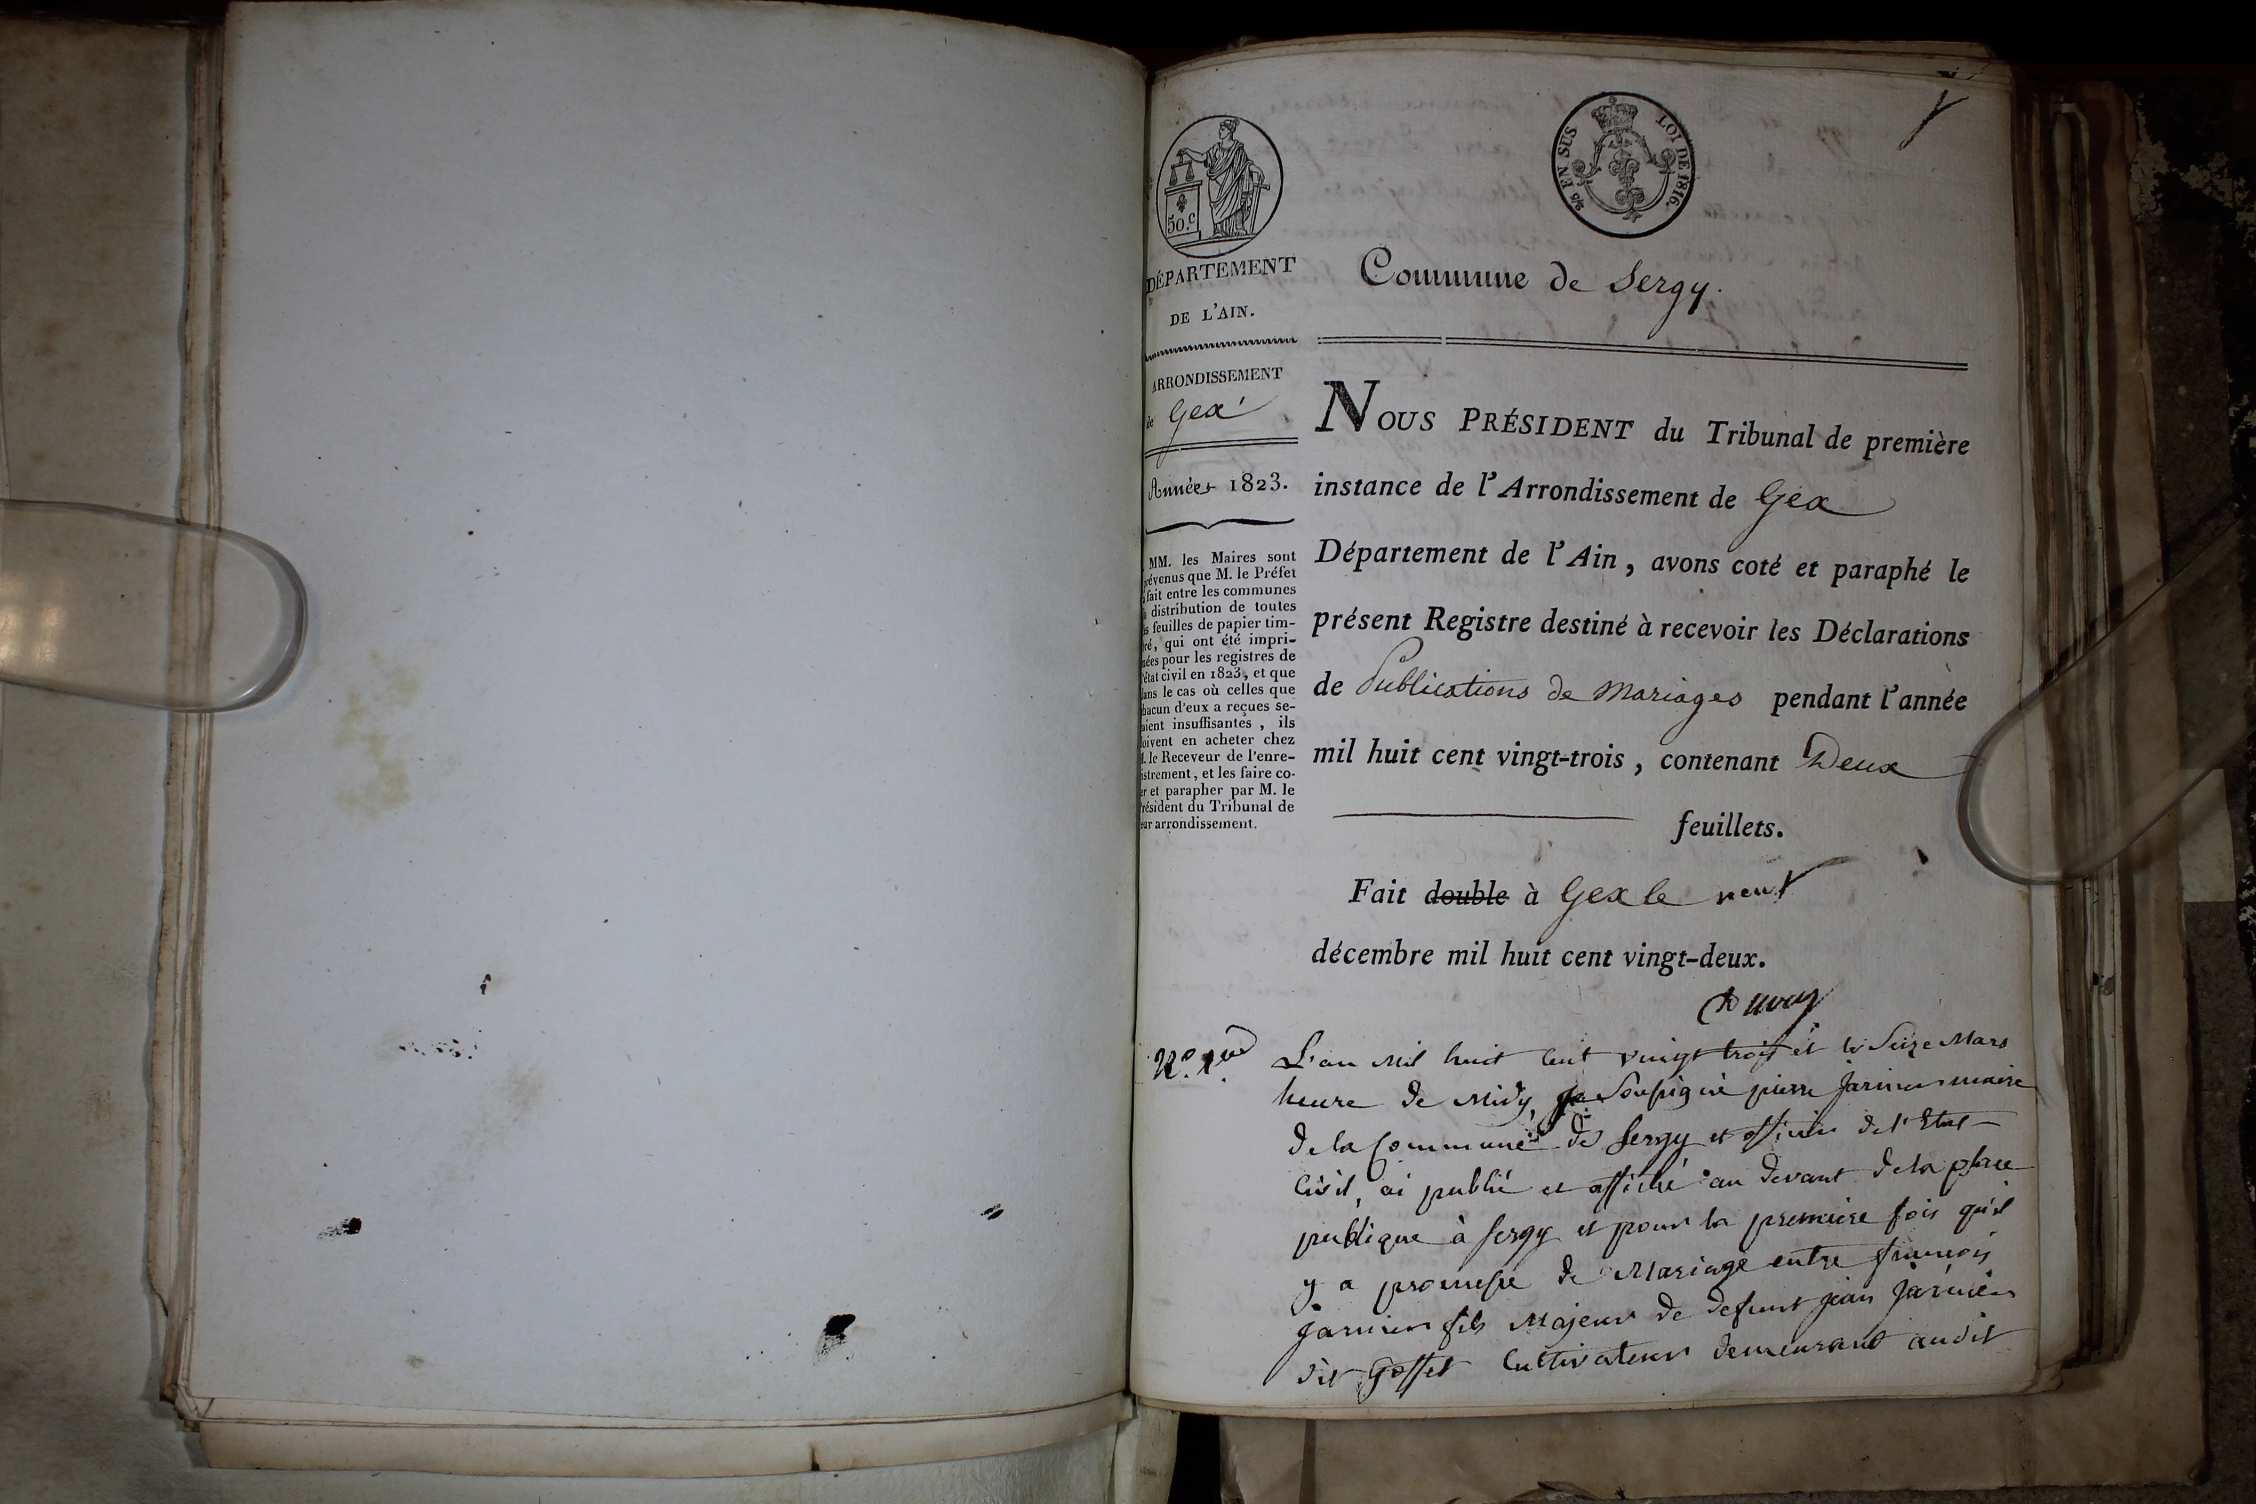 50.c
EN SUS LOI DE 1816.
DÉPARTEMENT
DE L'AIN.
ARRONDISSEMENT
de Gex
Année 1823.
MM. les Maires sont
prévenus que M. le Préfet
a fait entre les communes
la distribution de toutes
les feuilles de papier tim-
bré, qui ont été impri-
mées pour les registres de
l'état civil en 1823, et que
dans le cas où celles que
chacun d'eux a reçues se-
raient insuffisantes, ils
doivent en acheter chez
M. le Receveur de l'enre-
gistrement, et les faire co-
ter et parapher par M. le
Président du Tribunal de
leur arrondissement.
Commune de Sergy.
NOUS PRÉSIDENT du Tribunal de première
instance de l'Arrondissement de Gex
Département de l'Ain, avons coté et paraphé le
présent Registre destiné à recevoir les Déclarations
de Publications de Mariages pendant l'année
mil huit cent vingt-trois, contenant Deux
feuillets.
Fait double à Gex le neuf
décembre mil huit cent vingt-deux.
N.º 1.er
L'an Mil huit Cent vingt trois et le Seize Mars
heure de Midy, Soussigné pierre Jarnier maire
de la Commune de Sergy et officier de l'Etat
Civil, ai publié et affiché au devant de la place
publique à Sergy et pour la première fois qu'il
y a promesse de Mariage entre françois
Jarnier fils Majeur de defunt jean Jarnier
dit Goffet Cultivateur demeurant audit